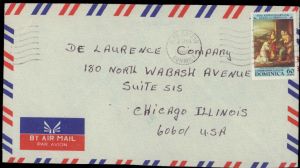 DE LAURENCE COMPANY
180 NORTH WABASH AVENUE
SUITE 515
CHICAGO ILLINOIS
60601 USA
BY AIR MAIL
PAR AVION
60
DOMINICA